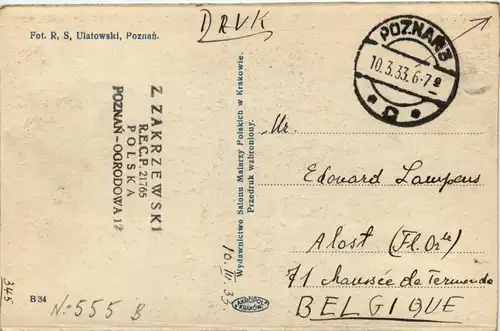 Fot. R. S, Ulatowski, Poznań.
DRUK
POZNAŃ 3
10.3.33.6-7
Z. ZAKRZEWSKI
R.E.C.P. 21765
POLSKA
POZNAŃ-OGRODOWA 12
Wydawnictwo Salonu Malarzy Polskich w Krakowie.
Przedruk wzbroniony.
10. III. 33.
Mr.
Edouard Lampens
Alost (Fl. Orle)
71 Chaussée de Termonde
BELGIQUE
AKROPOL
KRAKÓW
B 34
345
No 555 B